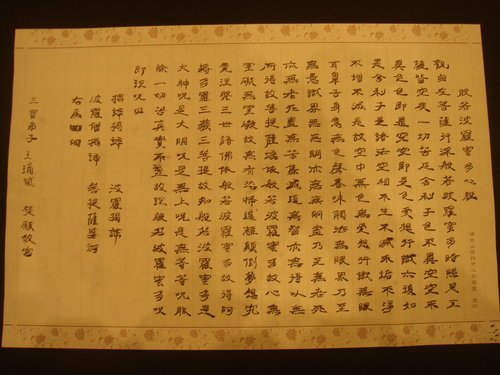 般若波羅蜜多心經
觀自在菩薩行深般若波羅蜜多時照見五
蘊皆空度一切苦厄舍利子色不異空空不
異色色即是空空即是色受想行識亦復如
是舍利子是諸法空相不生不滅不垢不淨
不增不減是故空中無色無受想行識無眼
耳鼻舌身意無色聲香味觸法無眼界乃至
無意識界無無明亦無無明盡乃至無老死
亦無老死盡無苦集滅道無智亦無得以無
所得故菩提薩埵依般若波羅蜜多故心無
罣礙無罣礙故無有恐怖遠離顛倒夢想究
竟涅槃三世諸佛依般若波羅蜜多故得阿
耨多羅三藐三菩提故知般若波羅蜜多是
大神咒是大明咒是無上咒是無等等咒能
除一切苦真實不虛故說般若波羅蜜多咒
即說咒曰
揭諦揭諦 波羅揭諦
波羅僧揭諦 菩提薩婆訶
右為
三寶弟子 王 發願敬寫